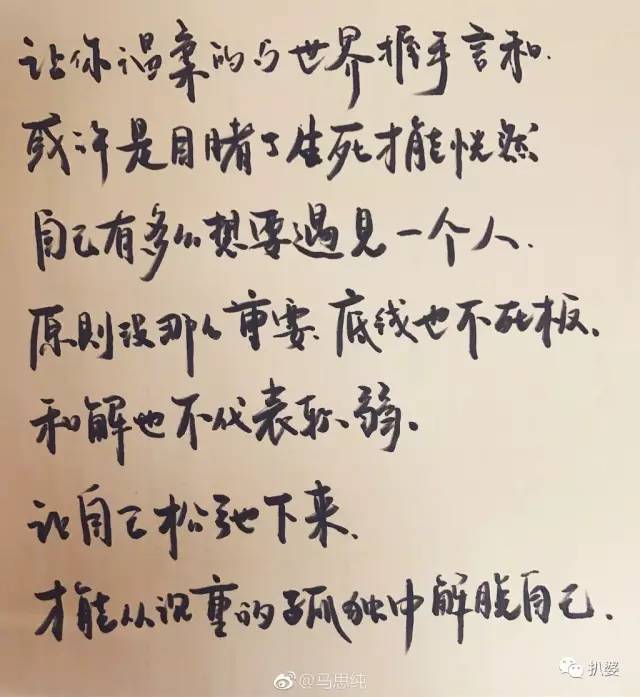 让你温柔的与世界握手言和.
或许是目睹了生死才能恍然
自己有多么想要遇见一个人.
原则没那么重要.底线也不死板.
和解也不代表软弱.
让自己松弛下来.
才能从沉重的孤独中解脱自己.
@马思纯
扒婆